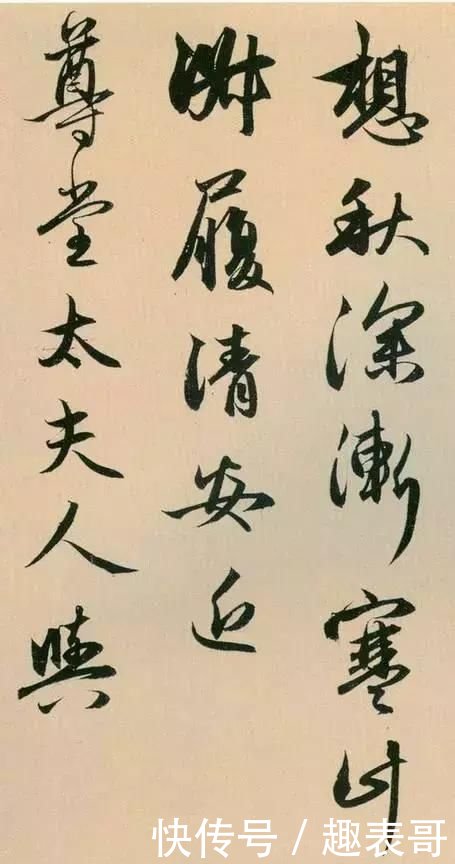 想秋深漸寒計
淑履清安近
尊堂太夫人與
快传号 / 趣表哥